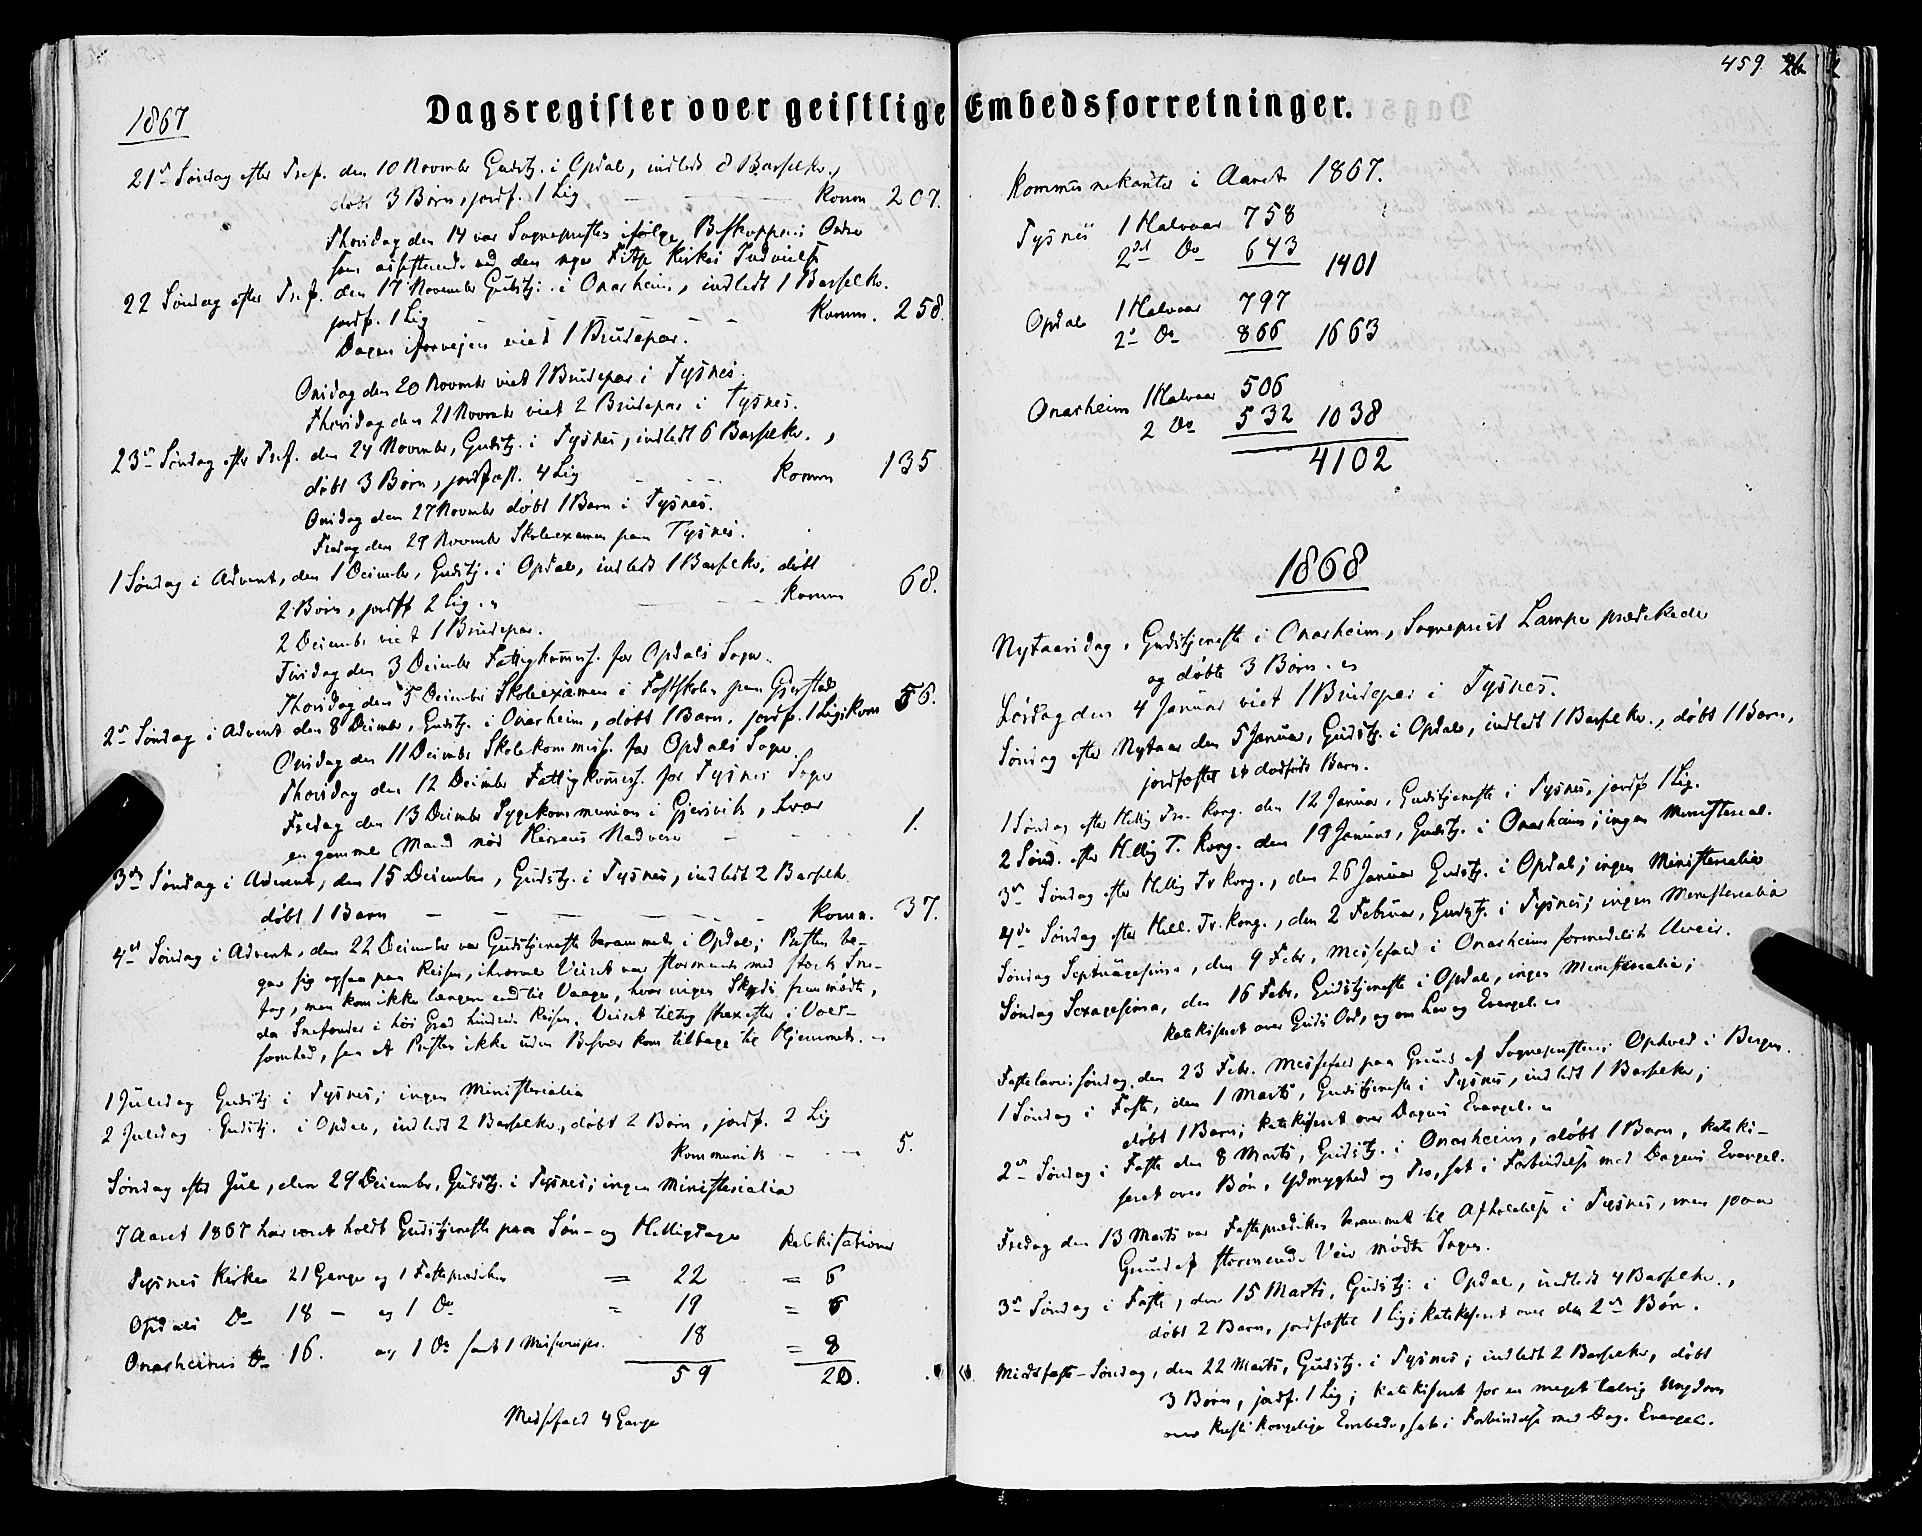 459 26
Dagsregister over geistlige Embedsforretninger.
1867
21de Søndag efter Tref. den 10 Novembr Gudstj. i Opdal, indledt 8 Barselkv.,
døbt 3 Børn, jordf. 1 Lig — — — Komm 207.
Thorsdag den 14 var Sognepresten ifølge Biskoppens Ordre
som assisterende ved den nye Fitje Kirkes Indvielse
22 Søndag efter Tref. den 17 November Gudstj. i Onarheim, indledt 1 Barselkv.
jordf. 1 Lig — — — Komm. 258.
Dagen iforvejen viet 1 Brudepar.
Onsdag den 20 Novembr viet 1 Brudepar i Tysnes.
Thorsdag den 21 Novembr viet 2 Brudepar i Tysnes.
23de Søndag efter Tref. den 24 Novembr, Gudstj. i Tysnes, indledt 6 Barselkv.,
døbt 3 Børn, jordfæst. 4 Lig — — Komm 135
Onsdag den 27 Novembr døbt 1 Barn i Tysnes.
Fredag den 29 Novembr Skoleexamen paa Tysnes.
1 Søndag i Advent, den 1 Decimber, Gudstj. i Opdal, indledt 1 Barselkv, døbt
2 Børn, jordf 2 Lig. — — — Komm 68.
2 Decimbr viet 1 Brudepar.
Tirsdag den 3 Decimber Fattigkommis. for Opdals Sogn.
Thorsdag den 5 Decimber Skoleexamen i Fastskolen paa Gjerstad
2de Søndag i Advent den 8 Decimber, Gudstj. i Onarheim, døbt 1 Barn, jordf. 1 Lig; Kom 56.
Onsdag den 11 Decimbr Skolekommiss. for Opdals Sogn.
Thorsdag den 12 Decimber Fattigkommis. for Tysnes Sogn
Fredag den 13 Decimber Sygekommunion i Gjersvik, hvor
en gammel Mand nød Herrens Nadvere — — — 1.
3de Søndag i Advent, den 15 Decimber, Gudstj. i Tysnes, indledt 2 Barselk.
døbt 1 Barn — — — — Komm. 37.
4de Søndag i Advent, den 22 Decimber var Gudstjeneste berammet i Opdal; Presten be-
gav sig ogsaa paa Reisen, ihvorvel Veiret var stormende med stærk Sne-
fog, men kom ikke længere end til Vaage, hvor ingen Skyds fremmødte,
da Snefonder i høi Grad hindrede Reisen. Veiret tiltog strax efter i Vold-
somhed, saa at Presten ikke uden Besvær kom tilbage til Hjemmet.
1 Juledag Gudstj i Tysnes; ingen Ministerialia
2 Juledag Gudstj. i Opdal, indledt 2 Barselkv., døbt 2 Børn, jordf. 2 Lig
Kommunik — — 5.
Søndag efter Jul, den 29 Decimbr, Gudstj. i Tysnes; ingen Ministerialia
I Aaret 1867 har været holdt Gudstjeneste paa Søn- og Helligdage Katekisationer
Tysnes Kirke 21 Gange og 1 Fasteprædiken = 22 = 6
Opdals Do 18 — og 1 Do = 19 = 6
Onarheims Do 16. og 1 Do samt 1 Missionsgu. 18 = 8
59 20.
Messefald 4 Gange
Kommunekanter i Aaret 1867.
Tysnes 1 Halvaar 758
2det Do 643 1401
Opdal 1 Halvaar 797
2t Do 866 1663
Onarheim 1 Halvaar 506
2 Do 532 1038
4102
1868
Nytaarsdag, Gudstjeneste i Onarheim, Sogneprest Lampe prædikede
og døbte 3 Børn.
Løsdag den 4 Januar viet 1 Brudepar i Tysnes.
Søndag efter Nytaar den 5 Januar, Gudstj. i Opdal, indledt 1 Barselkv., døbt 1 Barn,
jordfæstet et dødfødt Barn.
1 Søndag efter Hellig Tr. Kong. den 12 Januar, Gudstjeneste i Tysnes, jordf 1 Lig.
2 Sønd. efter Hellig T. Kong. den 19 Januar, Gudstj. i Onarheim; ingen Ministerial.
3de Søndag efter Hellig Tr Kong., den 26 Januar Gudstj. i Opdal; ingen Ministerialia
4de Søndag efter Hell. Tr. Kong., den 2 Februar, Gudstj. i Tysnes; ingen Ministerialia
Søndag Septuagesima, den 9 Febr. Messefald i Onarheim formedelst Uveir.
Søndag Sexagesima, den 16 Febr. Gudstjeneste i Opdal, ingen Ministerialia;
katekiseret over Guds Ord, og om Lov og Evangel.
Fastelavnssøndag, den 23 Febr. Messefald paa Grund af Sogneprestens Ophold i Bergen.
1 Søndag i Faste, den 1 Marts, Gudstjeneste i Tysnes, indledt 1 Barselkv;
døbt 1 Barn; katekiseret over Dagens Evangel.
2de Søndag i Faste den 8 Marts, Gudstj. i Onarheim, døbt 1 Barn, kateki-
seret over Bøn, Ydmyghed og Tro, sat i Forbindelse med Dagens Evangel.
Fredag den 13 Marts var Fasteprædiken berammet til Afholdelse i Tysnes, men paa
Grund af stormende Veir mødte Ingen.
3de Søndag i Faste, den 15 Marts, Gudstj. i Opdal, indledt 4 Barselkv.,
døbt 2 Børn, jordfæstet 1 Lig; katekiseret over den 2den Bøn.
Midtfaste-Søndag, den 22 Marts, Gudstj. i Tysnes; indledt 2 Barselkv, døbt
3 Børn, jordf. 1 Lig; katekiseret for en meget talrig Ungdom
over Kristi kongelige Embede, sat i Forbindelse med Dag. Evangel.